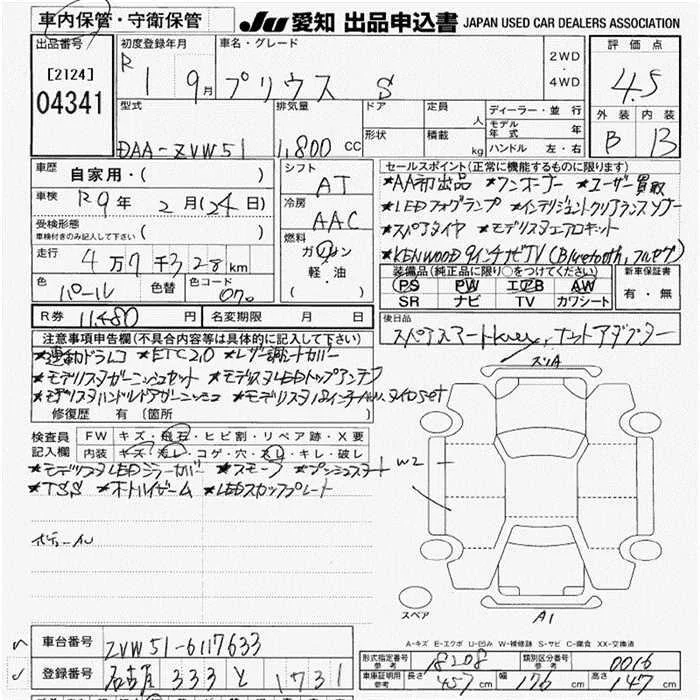 車内保管・守衛保管 JU 愛知 出品申込書 JAPAN USED CAR DEALERS ASSOCIATION
出品番号 初度登録年月 車名・グレード 2WD ・ 4WD 評価点
[2124] 04341 R1 9月 プリウス S 4.5
型式 排気量 ドア 定員 人 ディーラー・並行 外装 内装
形状 積載 kg モデル年式 年 ハンドル 左・右
DAA-ZVW51 1,800 CC B B
車歴 自家用・( ) シフト AT セールスポイント(正常に機能するものに限ります)
車検 R9年 2月(24日) 冷房 AAC *AA初出品 *ワンオーナー *ユーザー買取
受検形態 車検付きのみ記入して下さい ( ) *LEDフォグランプ *インテリジェントクリアランスソナー
燃料 ガソリン 軽・油 *スペアタイヤ *モデリスタエアロキット
走行 4万7千328km *KENWOOD9インチナビTV(Bluetooth,フルセグ)
色 パール 色替 色コード 070 装備品(純正品に限り○をつけてください) 新車保証書
PS PW エアB AW 有・無
SR ナビ TV カワシート
R券 11,480円 名変期限 月 日 後日品
スペアスマートkey,ナットアダプター
注意事項申告欄(不具合内容等は具体的に記入して下さい)
*連動ドラレコ *ETC2.0 *レザー調シートカバー
*モデリスタガーニッシュセット *モデリスタLEDトップアンテナ
*モデリスタハンドルドアガーニッシュ *モデリスタ18インチAW.タイヤset
修復歴 有(箇所 )
検査員記入欄 FW キズ・飛石・ヒビ割・リペア跡・X要
内装 キズ・汚レ・コゲ・穴・スレ・キレ・破レ
*モデリスタLEDミラーカバー *スモーク *プッシュスタート
*TSS *ボトルゲーム *LEDスカッフプレート
スリA
W2
スペア
A1
A-キズ E-エクボ U-凹み W-補修跡 S-サビ C-腐食 XX-交換済
車台番号 ZVW51-6117633
登録番号 名古屋 333 と 1731
形式指定番号 参考 18208 類別区分番号 参考 0016
車庫証明用 参考 長さ 457cm 幅 176cm 高さ 147cm